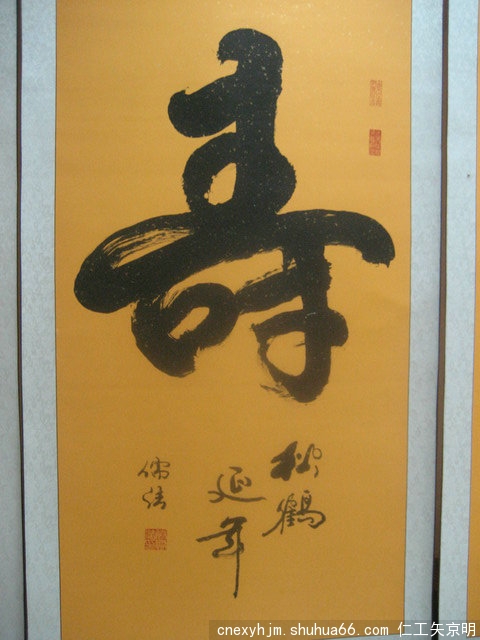 寿
松鶴
延年
cnexyhjm.shuhua66.com 仁工矢京明